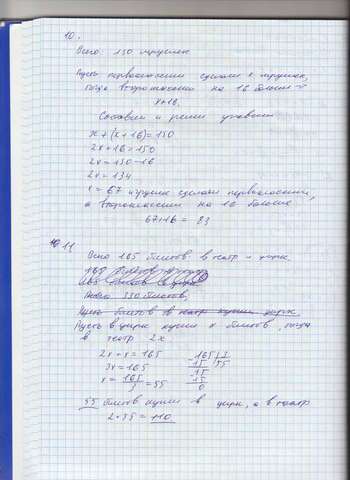 10.
Всего: 150 игрушек
Пусть первоклассники сделали x игрушек,
тогда второклассники на 16 больше
x+16.
Составим и решим уравнение
x+(x+16)=150
2x+16=150
2x=150-16
2x=134
x=67 игрушек сделали первоклассники,
а второклассники на 16 больше
67+16 = 83
11
Всего 165 билетов в театр и цирк.
Всего 330 билетов,
Пусть билетов в театр купили цирк
Пусть в цирк купили x билетов, тогда
в театр 2x.
2x+x=165
3x=165
x=165/3=55
-165|3
15 |55
-15
15
0
55 билетов купили в цирк, а в театр
2·55=110